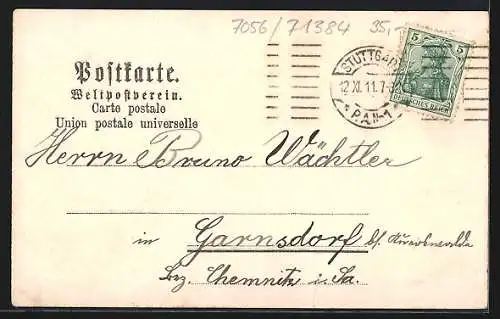 7056/71384 35,-
Postkarte.
Weltpostverein.
Carte postale
Union postale universelle
STUTTGART
12 XI. 11. 7-8
P.A.N-1
5 5
DEUTSCHES REICH
Herrn Bruno Wächtler
in Garnsdorf b/
Bez. Chemnitz i. Sa.